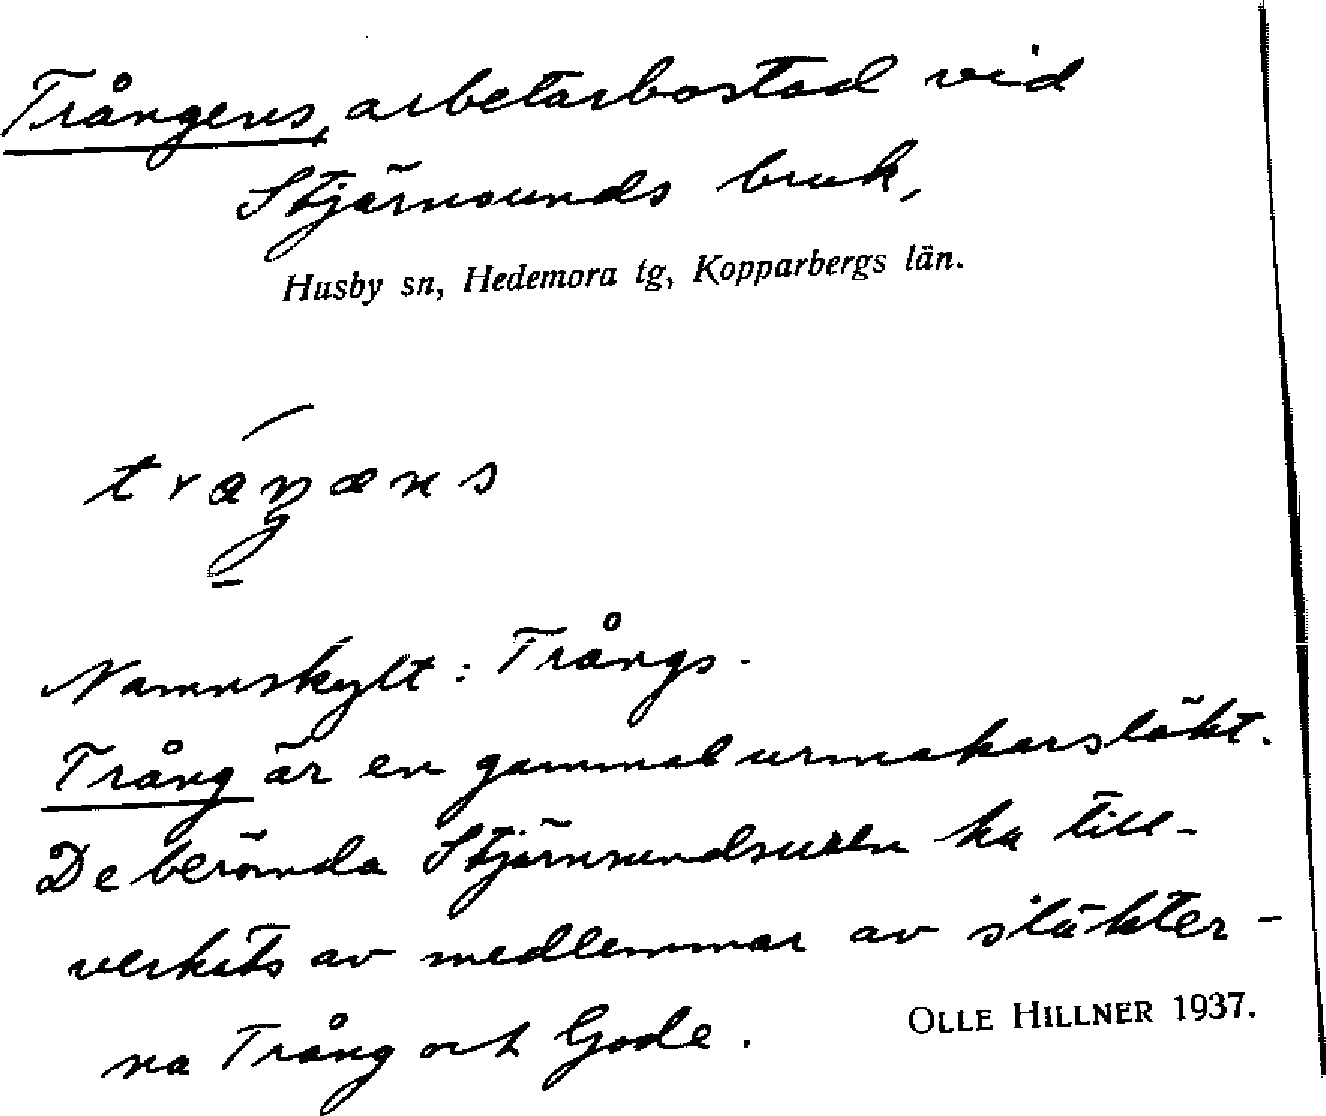 Trångens, arbetarbostad vid
Stjärnsunds bruk,
Husby sn, Hedemora tg, Kopparbergs län.
Namnskylt: Trångs.
Trång är en gammal urmakarsläkt.
De berömda Stjärnsundsuren ha till-
verkats av medlemmar av släkter-
na Trång och Gode.
OLLE HILLNER 1937.